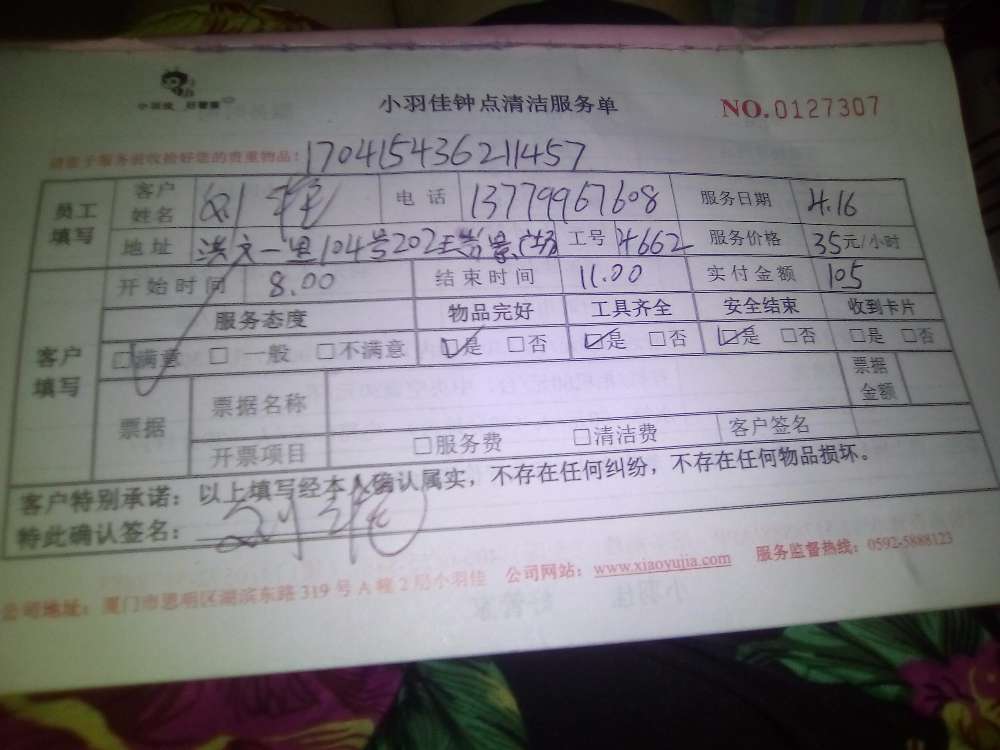 小羽佳 好管家
小羽佳钟点清洁服务单
NO.0127307
请在服务前收捡好您的贵重物品：170415436211457
员工填写 客户姓名 电话 13779967608 服务日期 4.16
地址 洪文一里104号202 工号 4662 服务价格 35元/小时
开始时间 8.00 结束时间 11.00 实付金额 105
客户填写 服务态度 物品完好 工具齐全 安全结束 收到卡片
☑满意 □一般 □不满意 ☑是 □否 ☑是 □否 ☑是 □否 □是 □否
票据 票据名称 票据金额
开票项目 □服务费 □清洁费 客户签名
客户特别承诺：以上填写经本人确认属实，不存在任何纠纷，不存在任何物品损坏。
特此确认签名：
公司地址：厦门市思明区湖滨东路319号A幢2层小羽佳 公司网站：www.xiaoyujia.com 服务监督热线：0592-5888123